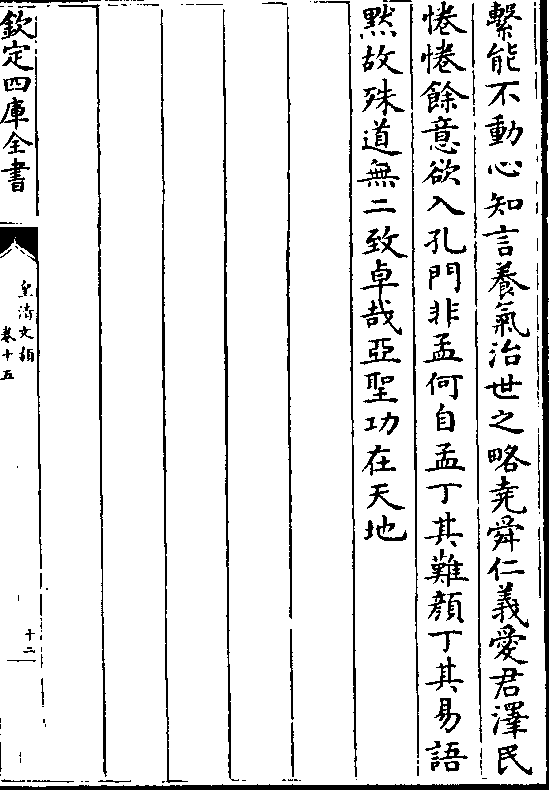 繫能不動心知言養氣治世之略堯舜仁義愛君澤民
惓惓餘意欲入孔門非孟何自孟丁其難顔丁其易語
黙故殊道無二致卓哉亞聖功在天地
欽定四庫全書
皇清文穎
卷十五
十二